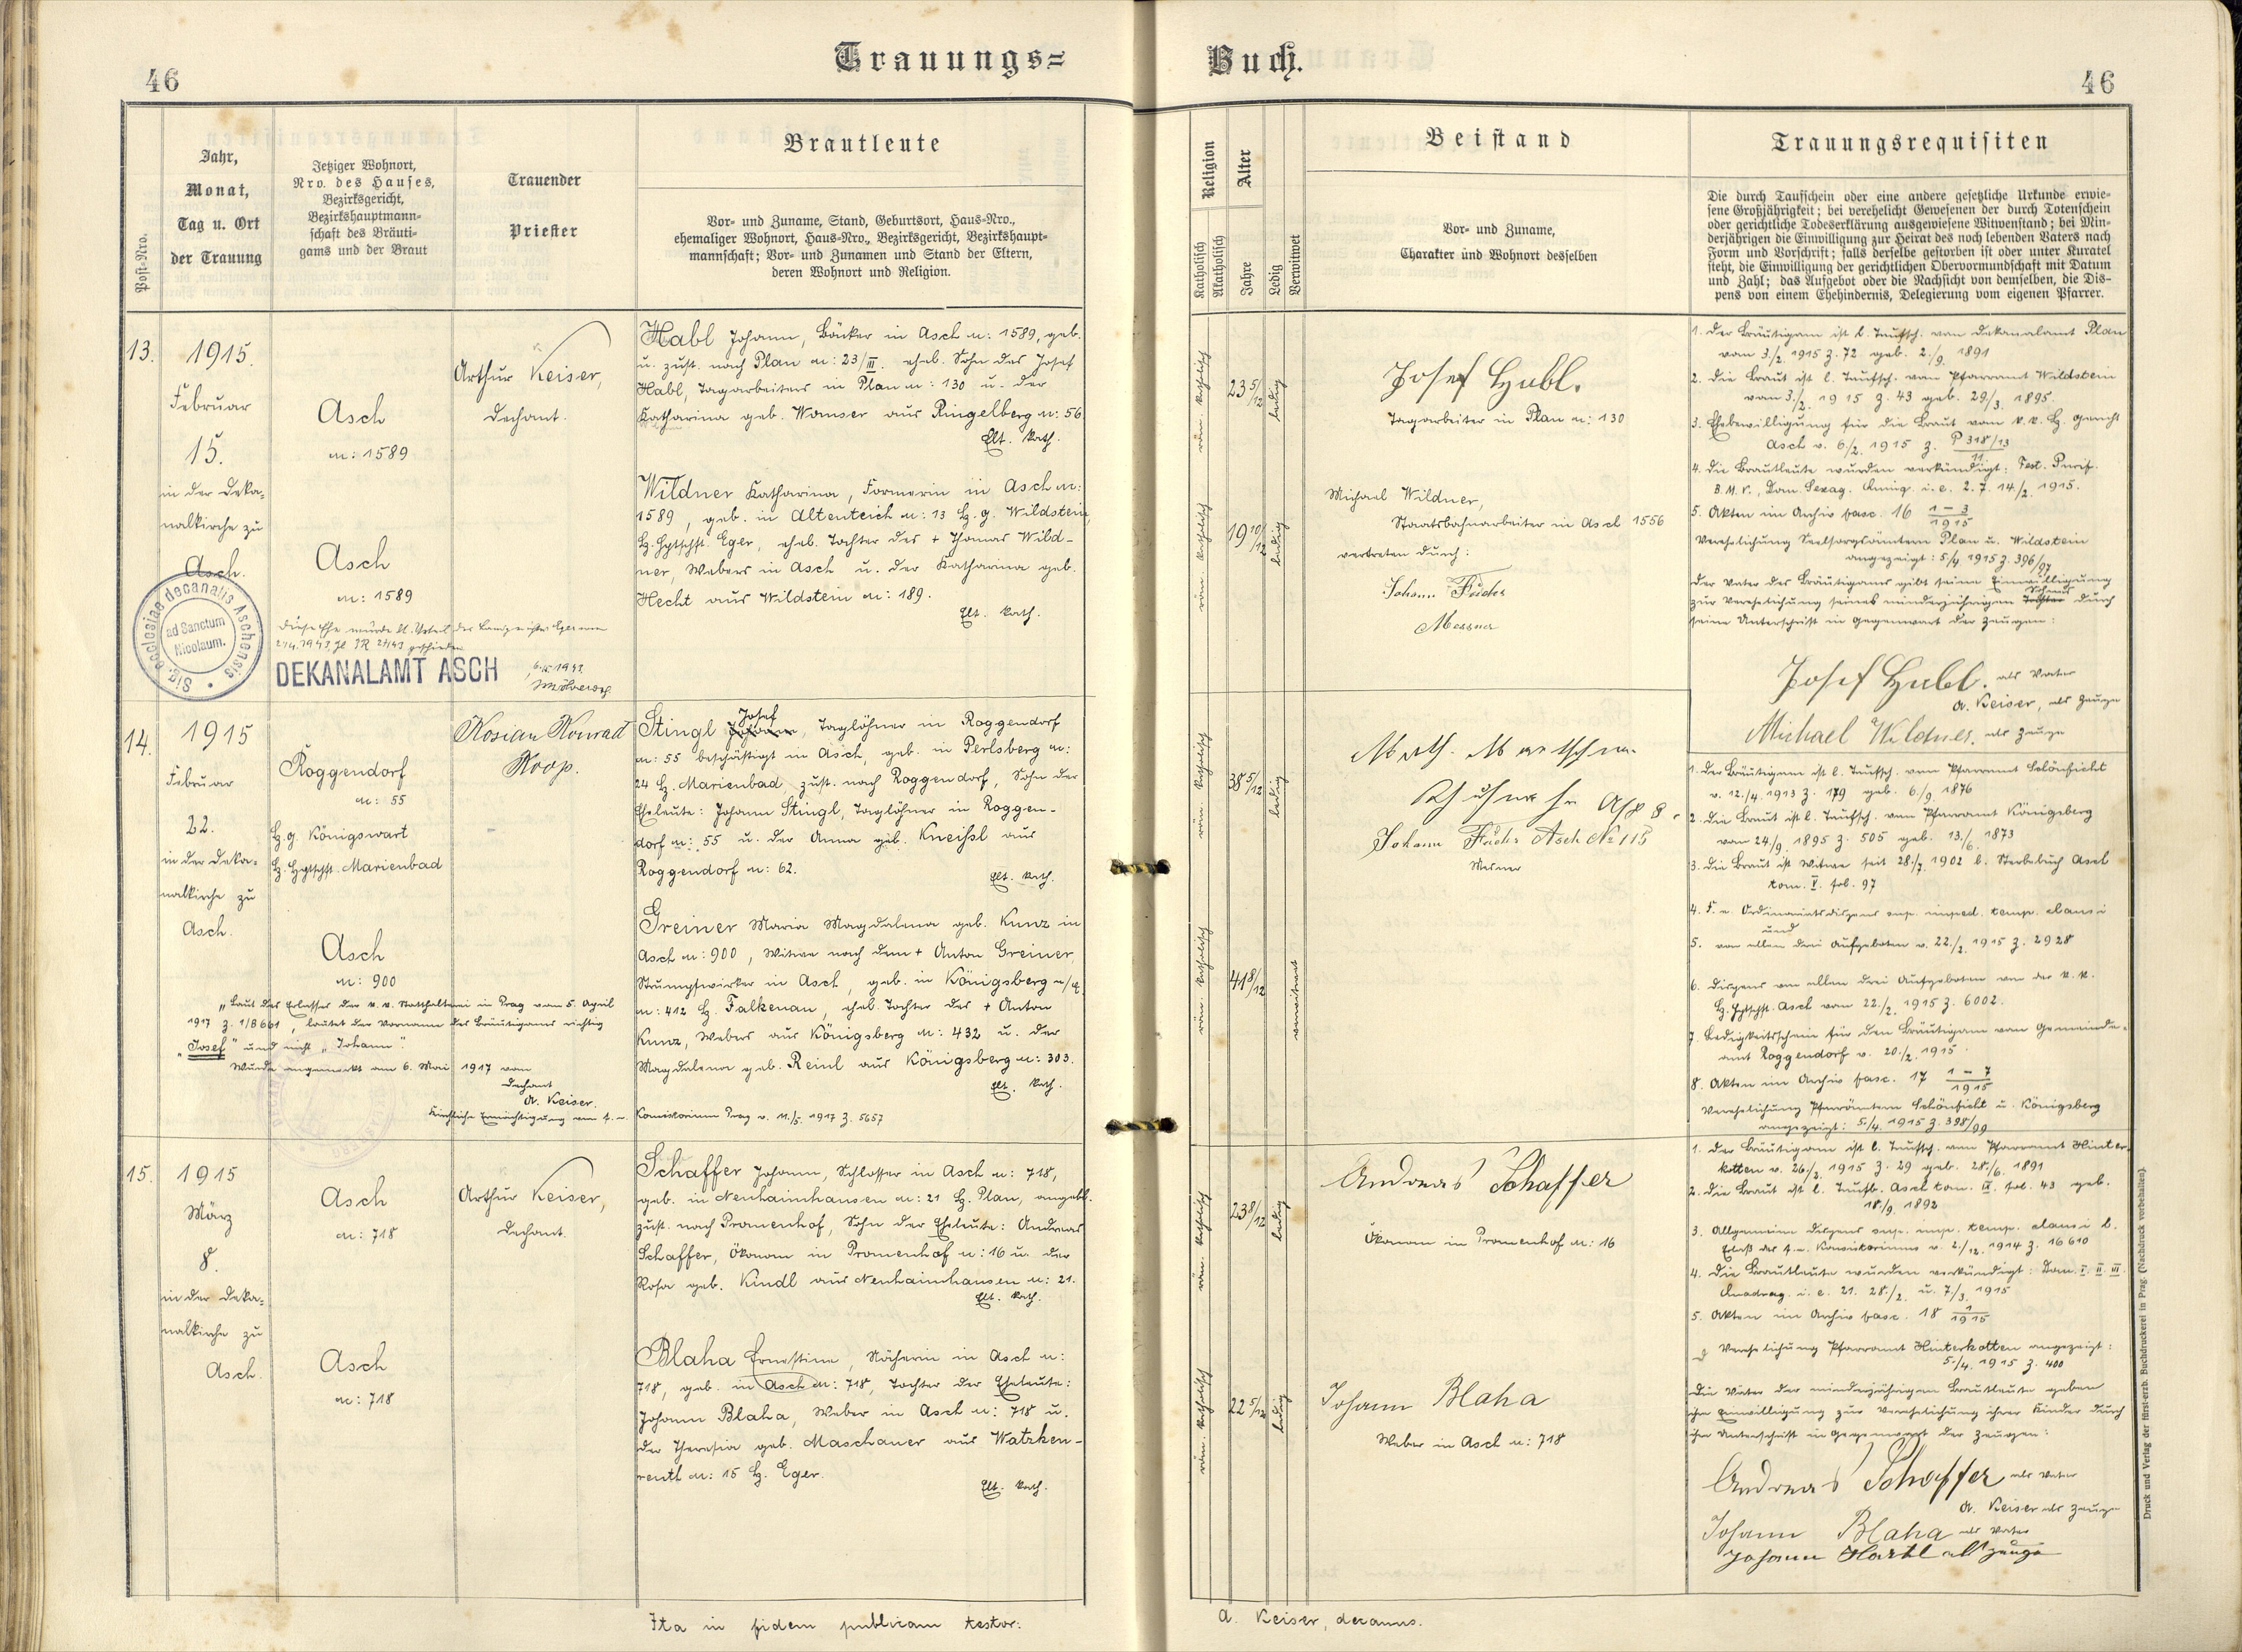 46
Trauungs=
Buch.
46
Post-Nro.
Jahr,
Monat,
Tag u. Ort
der Trauung
Jetziger Wohnort,
Nro. des Hauses,
Bezirksgericht,
Bezirkshauptmann-
schaft des Bräuti-
gams und der Braut
Trauender
Priester
Brautleute
Vor- und Zuname, Stand, Geburtsort, Haus-Nro.,
ehemaliger Wohnort, Haus-Nro., Bezirksgericht, Bezirkshaupt-
mannschaft; Vor- und Zunamen und Stand der Eltern,
deren Wohnort und Religion.
Religion
Katholisch
Akatholisch
Alter
Jahre
Ledig
Verwitwet
Beistand
Vor- und Zuname,
Charakter und Wohnort desselben
Trauungsrequisiten
Die durch Taufschein oder eine andere gesetzliche Urkunde erwie-
sene Großjährigkeit; bei verehelicht Gewesenen der durch Totenschein
oder gerichtliche Todeserklärung ausgewiesene Witwenstand; bei Min-
derjährigen die Einwilligung zur Heirat des noch lebenden Vaters nach
Form und Vorschrift; falls derselbe gestorben ist oder unter Kuratel
steht, die Einwilligung der gerichtlichen Obervormundschaft mit Datum
und Zahl; das Aufgebot oder die Nachsicht von demselben, die Dis-
pens von einem Ehehindernis, Delegierung vom eigenen Pfarrer.
13.
1915.
Februar
15.
in der Deka-
nalkirche zu
Asch.
Asch
n: 1589
Asch
n: 1589
Arthur Keiser,
Dechant.
Habl Johann, Bäcker in Asch n: 1589, geb.
u. zust. nach Plan n: 23/III. ehel. Sohn des Josef
Habl, Tagarbeiters in Plan n: 130 u. der
Katharina geb. Wamser aus Ringelberg n: 56
Elt. kath.
Wildner Katharina, Formerin in Asch n:
1589, geb. in Altenteich n: 13 Bz. g. Wildstein,
Bz. Hptschft. Eger, ehel. Tochter des + Thomas Wild-
ner, Webers in Asch u. der Katharina geb.
Hecht aus Wildstein n: 189.
Elt. kath.
Sig. ecclesiae decanalis Aschensis
ad Sanctum
Nicolaum.
Diese Ehe wurde lt. Urteil des Landgerichtes Eger vom
geschieden
DEKANALAMT ASCH
röm. katholisch
23 5/12
ledig
röm. katholisch
19 10/12
ledig
Josef Habl.
Tagarbeiter in Plan n: 130
Michael Wildner,
Staatsbahnarbeiter in Asch 1556
vertreten durch:
Johann Fuchs
Messner
1. Der Bräutigam ist l. Taufsch. vom Dekanalamt Plan
vom 3./2. 1915 Z. 72. geb. 2./9. 1891
2. Die Braut ist l. Taufsch. vom Pfarramt Wildstein
vom 3./2. 1915 Z. 43 geb. 29/3. 1895.
3. Ehebewilligung für die Braut vom k. k. Bz. Gericht
Asch v. 6/2. 1915 Z. P 318/13
11.
4. Die Brautleute wurden verkündigt: Fest. Purif.
B. M. V., Dom. Sexag. Quinq. i. e. 2. 7. 14./2. 1915.
5. Akten im Archiv fasc. 16 1-3/1915
Verehelichung Seelsorgsämtern Plan u. Wildstein
angezeigt: 5/4. 1915 Z. 396/97
Der Vater des Bräutigams gibt seine Einwilligung
zur Verehelichung seines minderjährigen Tochter Sohnes durch
seine Unterschrift in Gegenwart der Zeugen:
Josef Habl. als Vater
A. Keiser, als Zeuge
Michael Wildner. als Zeuge
14.
1915
Februar
22.
in der Deka-
nalkirche zu
Asch.
Roggendorf
n: 55
Bz. g. Königswart
Bz. Hptschft. Marienbad
Asch
n: 900
Kosian Konrad
Koop.
Stingl Johann Josef, Taglöhner in Roggendorf
n: 55 beschäftigt in Asch, geb. in Perlsberg n:
24 Bz. Marienbad, zust. nach Roggendorf, Sohn der
Eheleute: Johann Stingl, Taglöhner in Roggen-
dorf n: 55 u. der Anna geb. Kneißl aus
Roggendorf n: 62.
Elt. kath.
Greiner Maria Magdalena geb. Kunz in
Asch n: 900, Witwe nach dem + Anton Greiner,
Strumpfwirker in Asch, geb. in Königsberg a/E.
n: 412 Bz. Falkenau, ehel. Tochter des + Anton
Kunz, Webers aus Königsberg n: 432 u. der
Magdalena geb. Reinl aus Königsberg n: 303.
Elt. kath.
"Laut des Erlasses der k. k. Statthalterei in Prag vom 5. April
1917 Z. 1/B 661, lautet der Vorname des Bräutigams richtig
"Josef" und nicht "Johann".
Wurde angemerkt am 6. Mai 1917 vom
Dechant
A. Keiser.
Kirchliche Ermächtigung vom f. e. Konsistorium Prag v. 11./5. 1917 Z. 5657
röm. katholisch
38 5/12
ledig
röm. katholisch
41 8/12
verwitwet
Johann Fuchs Asch No 115
Mesner
1. Der Bräutigam ist l. Taufsch. vom Pfarramt Schönficht
v. 12./4. 1913 Z. 179 geb. 6/9. 1876
2. Die Braut ist l. Taufsch. vom Pfarramt Königsberg
vom 24/9. 1895 Z. 505 geb. 13./6. 1873
3. Die Braut ist Witwe seit 28./7. 1902 l. Sterbebuch Asch
tom. V. fol. 97
4. F. e. Ordinariatsdispens sup. imped. temp. clausi
und
5. von allen drei Aufgeboten v. 22./2. 1915 Z. 2928
6. Dispens von allen drei Aufgeboten von der k. k.
Bz. Hptschft. Asch vom 22./2. 1915 Z. 6002.
7. Ledigkeitsschein für den Bräutigam vom Gemeinde-
amt Roggendorf v. 20./2. 1915.
8. Akten im Archiv fasc. 17 1-7/1915
Verehelichung Pfarrämtern Schönficht u. Königsberg
angezeigt: 5/4. 1915 Z. 398/99
15.
1915
März
8.
in der Deka-
nalkirche zu
Asch.
Asch
n: 718
Asch
n: 718
Arthur Keiser,
Dechant.
Schaffer Johann, Schlosser in Asch n: 718,
geb. in Neuhaimhausen n: 21 Bz. Plan, angebl.
zust. nach Promenhof, Sohn der Eheleute: Andreas
Schaffer, Ökonom in Promenhof n: 16 u. der
Rosa geb. Kindl aus Neuhaimhausen n: 21.
Elt. kath.
Blaha Ernestine, Näherin in Asch n:
718, geb. in Asch n: 718, Tochter der Eheleute:
Johann Blaha, Weber in Asch n: 718 u.
der Theresia geb. Maschauer aus Watzken-
reuth n: 15 Bz. Eger.
Elt. kath.
röm. katholisch
23 8/12
ledig
röm. katholisch
22 5/12
ledig
Andreas Schaffer
Ökonom in Promenhof n: 16
Johann Blaha
Weber in Asch n: 718
1. Der Bräutigam ist l. Taufsch. vom Pfarramt Hinter-
kotten v. 26./2. 1915 Z. 29 geb. 28./6. 1891
2. Die Braut ist l. Taufb. Asch tom. IX. fol. 43 geb.
18./9. 1892
3. Allgemeine Dispens sup. imp. temp. clausi l.
Erlaß des f. e. Konsistoriums v. 2./12. 1914 Z. 16610
4. Die Brautleute wurden verkündigt: Dom. I. II. III.
Quadrag. i. e. 21. 28./2. u. 7/3. 1915
5. Akten im Archiv fasc. 18 1/1915
Verehelichung Pfarramt Hinterkotten angezeigt:
5./4. 1915 Z. 400
Die Väter der minderjährigen Brautleute geben
ihre Einwilligung zur Verehelichung ihrer Kinder durch
ihre Unterschrift in Gegenwart der Zeugen:
Andreas Schaffer als Vater
A. Keiser als Zeuge
Johann Blaha als Vater
Johann Hartl als Zeuge
Ita in fidem publicam testor:
A. Keiser, decanus.
Druck und Verlag der fürst-erzb. Buchdruckerei in Prag. (Nachdruck vorbehalten).